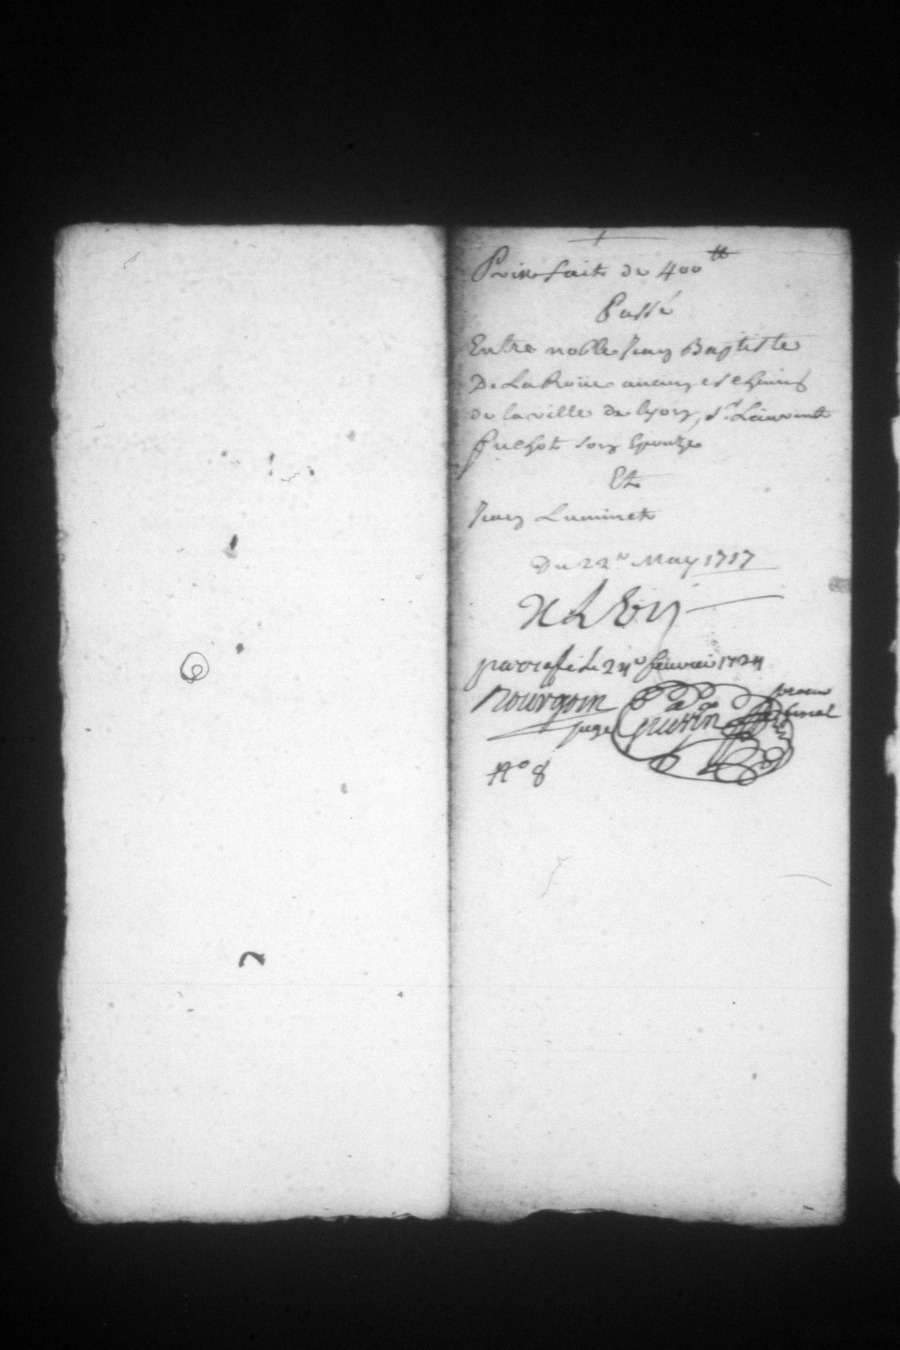 Prix fait de 400ᵗᵗ
Passé
Entre noble Jean Baptiste
De LaRoüe ancien eschevin
de la ville de lyon, Sʳ Laurent
fuchot son Epouze
Et
Jean Luminet
Du 22ᵉ May 1717
parraffé le 24ᵉ feuvrier 1724
Bourgoin
juge
procur
fiscal
Nº 8